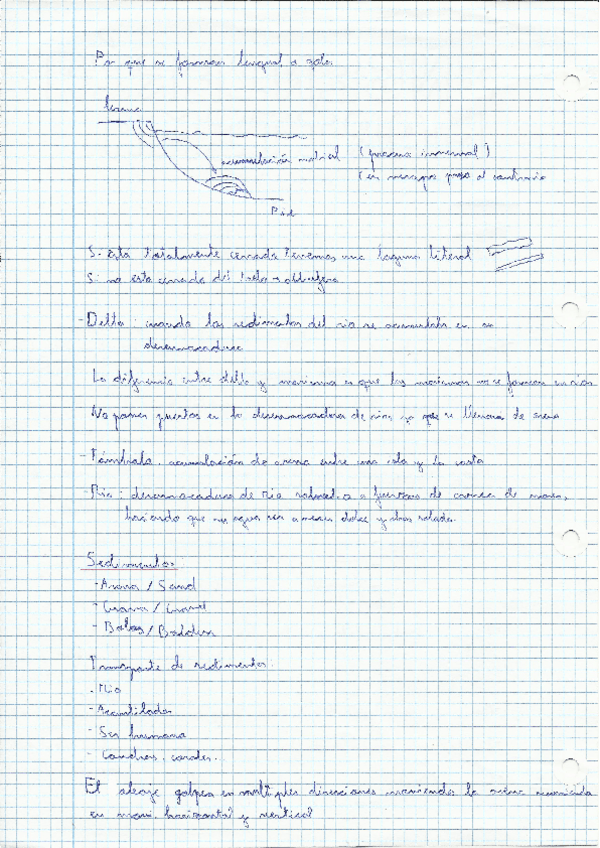 Por que se forman
acumulación material (proceso invernal)
(en verano pasa al contrario
Si está totalmente cerrada tenemos una laguna litoral
Si no esta cerrado del todo → albufera
- Delta: cuando los sedimentos del rio se acumulan en su
desembocadura
La diferencia entre delta y marisma es que las marismas no se forman en rios
No poner puertos en la desembocadura de rios, ya que se llenan de arena
- Tómbolo: acumulación de arena entre una isla y la costa
- Ria: desembocadura de rio sometida a fuerzas de carrera de marea,
haciendo que su agua sea a veces dulce y otras salada.
Sedimentos
- Arena / Sand
- Grava / Gravel
- Bolos / Boulders
Transporte de sedimentos:
- Rio
- Acantilados
- Ser humano
- Conchas, corales...
El oleaje golpea en multiples direcciones moviendo la arena
en horizontal y vertical